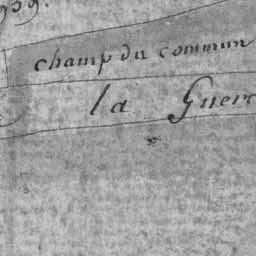 champ du commun
la Guer